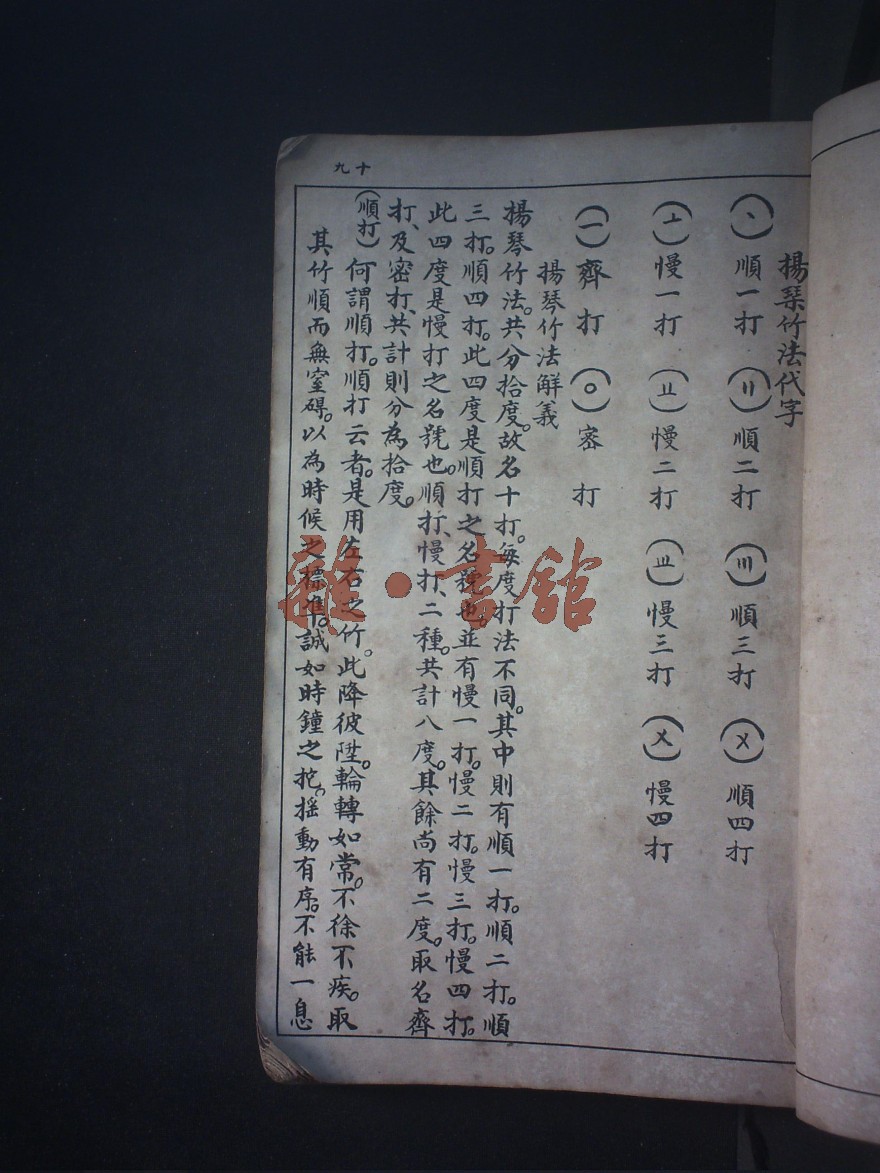 十九
揚琴竹法代字
(丶)順一打 (〢)順二打 (〣)順三打 (〤)順四打
(㆒)慢一打 (ㄐㄐ)慢二打 慢三打 (㐅)慢四打
(一)齊打 (〇)密打
揚琴竹法解義
揚琴竹法。共分拾度。故名十打。每度打法不同。其中則有順一打。順二打。順
三打。順四打。此四度是順打之名號也。並有慢一打。慢二打。慢三打。慢四打。
此四度是慢打之名號也。順打、慢打、二種。共計八度。其餘尚有二度。取名齊
打、及密打、共計則分為拾度。
(順打)何謂順打。順打云者。是用左右之竹。此降彼陞。輪轉如常。不徐不疾。取
其竹順而無窒碍。以為時候之標準。誠如時鐘之挖。搖動有序。不能一息
雅•書館